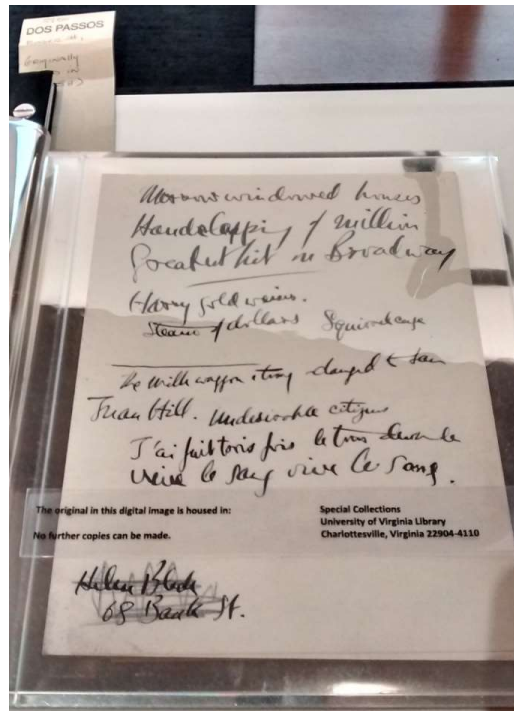 DOS PASSOS
Originally
IN
windowed houses
Handclapping of million
Greatest hit on Broadway
Harry Goldweiser.
Steam of dollars Squirrelcage
The milkwaggon thing changed to San
Juan Hill. Undesirable citizens
J'ai fait trois fois le tour de
vive le sang vive le sang.
The original in this digital image is housed in:
No further copies can be made.
Special Collections
University of Virginia Library
Charlottesville, Virginia 22904-4110
Helen Black
68 Bank St.